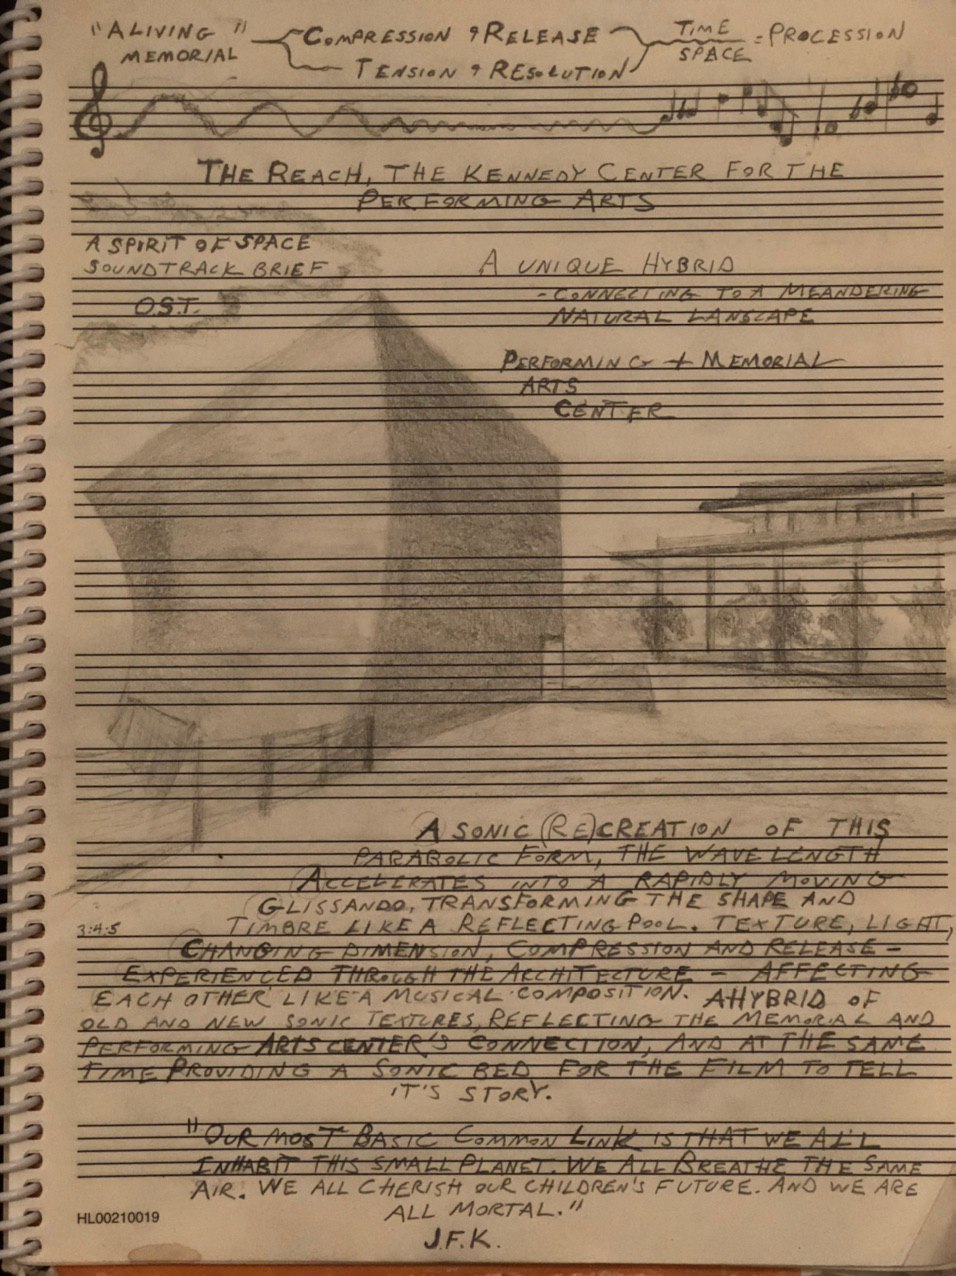 "A LIVING" COMPRESSION & RELEASE TIME = PROCESSION
MEMORIAL TENSION & RESOLUTION SPACE
THE REACH, THE KENNEDY CENTER FOR THE
PERFORMING ARTS
A SPIRIT OF SPACE
SOUNDTRACK BRIEF
O.S.T.
A UNIQUE HYBRID
- CONNECTING TO A MEANDERING
NATURAL LANSCAPE
PERFORMING + MEMORIAL
ARTS
CENTER
A SONIC (RE)CREATION OF THIS
PARABOLIC FORM, THE WAVELENGTH
ACCELERATES INTO A RAPIDLY MOVING
GLISSANDO, TRANSFORMING THE SHAPE AND
3:4:5 TIMBRE LIKE A REFLECTING POOL. TEXTURE, LIGHT,
CHANGING DIMENSION, COMPRESSION AND RELEASE -
EXPERIENCED THROUGH THE ARCHITECTURE - AFFECTING
EACH OTHER LIKE A MUSICAL COMPOSITION. A HYBRID OF
OLD AND NEW SONIC TEXTURES, REFLECTING THE MEMORIAL AND
PERFORMING ARTS CENTER'S CONNECTION, AND AT THE SAME
TIME PROVIDING A SONIC BED FOR THE FILM TO TELL
IT'S STORY.
"OUR MOST BASIC COMMON LINK IS THAT WE ALL
INHABIT THIS SMALL PLANET. WE ALL BREATHE THE SAME
AIR. WE ALL CHERISH OUR CHILDREN'S FUTURE. AND WE ARE
ALL MORTAL."
HL00210019
J.F.K.